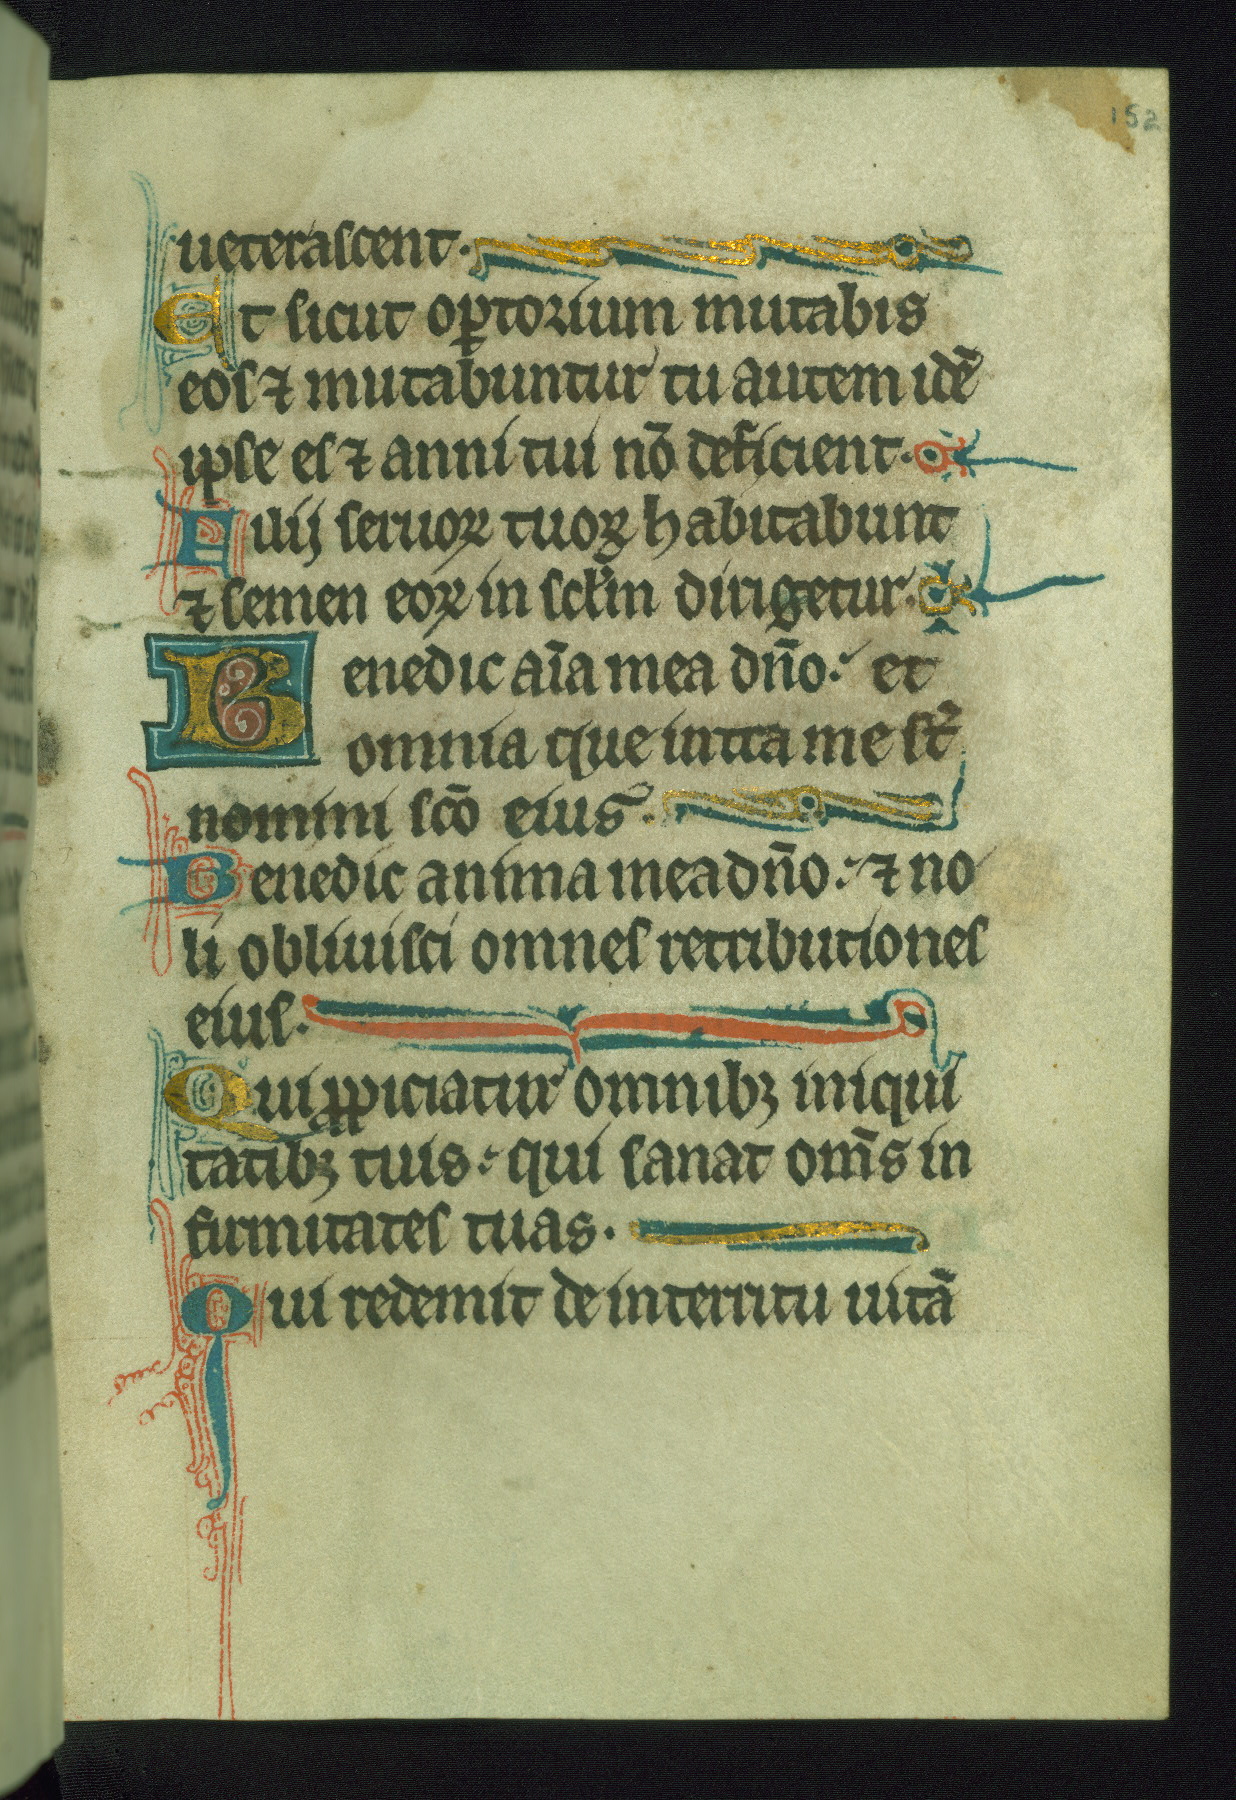 152
ueterascent.
Et sicut oꝑtorium mutabis
eos ⁊ mutabuntur tu autem idē
ipse es ⁊ anni tui nō deficient.
Filij seruoꝝ tuoꝝ habitabunt
⁊ semen eoꝝ in sc̄lm dirigetur.
Benedic aīa mea dn̄o. et
omnia que intra me st̄
nomini sc̄o eius.
Benedic anima mea dn̄o. ⁊ no
li obliuisci omnes retributiones
eius.
Qui ꝓpiciatur omnibꝫ iniqui
tatibꝫ tuis. qui sanat om̄s in
firmitates tuas.
Qui redemit de interritu uitā